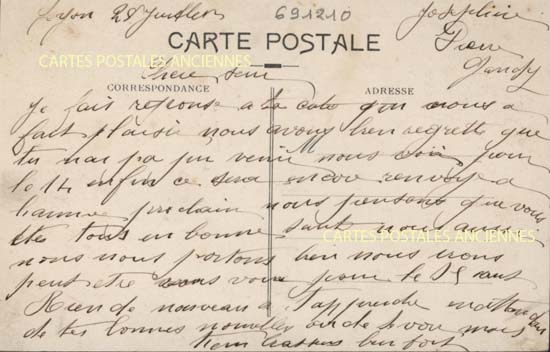 Lyon 28 Juillet
691210
Joséphine
Pierre
CARTE POSTALE
CARTES POSTALES ANCIENNES
Chere seur
CORRESPONDANCE
ADRESSE
Je fait reponse a ta cate qui nous a
fait plaisir nous avons bien regretté que
tu nai pa pu venir nous voir pour
le 14 enfin ce sera encore renvoye a
lannee prochain nous pensons que vous
etes tous en bonne santé
CARTES POSTALES ANCIENNES
nous nous portons bien nous irons
peut etre vous voir pour le 15 aout
Rien de nouveau a tapprendre
de tes bonnes nouvelles
bien fort